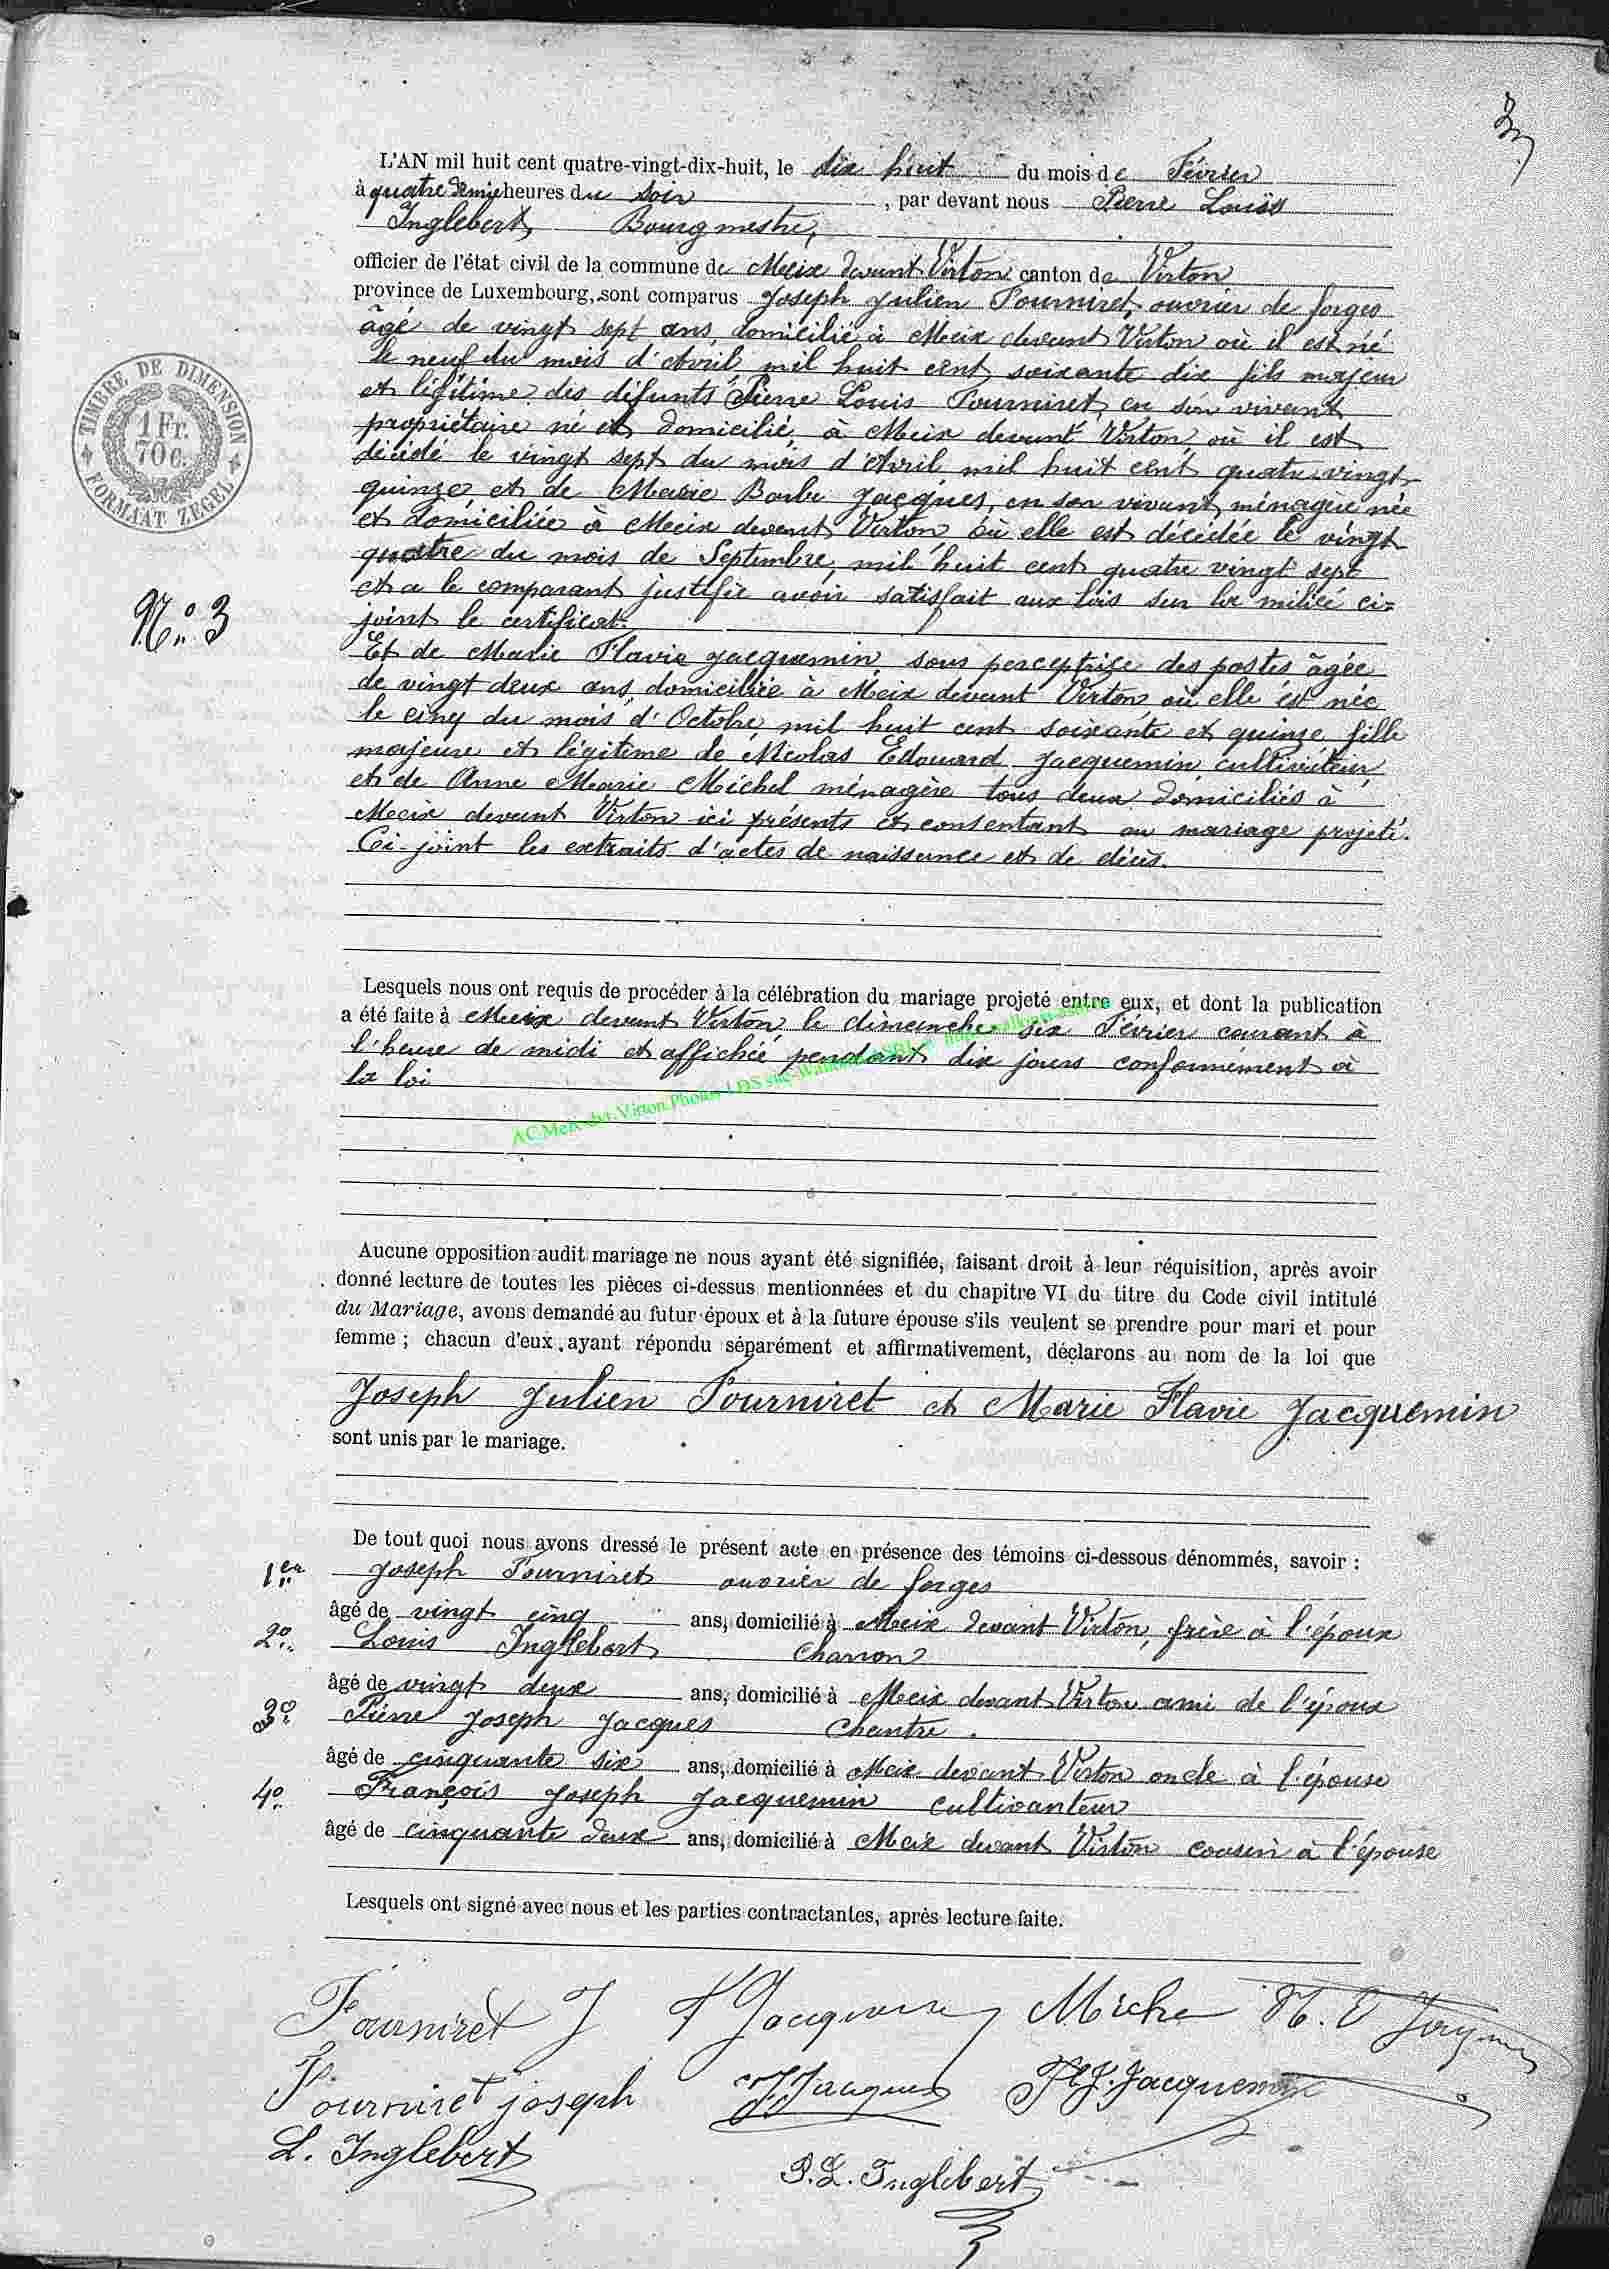 3
L'AN mil huit cent quatre-vingt-dix-huit, le dix huit du mois de Février
à quatre demie heures du soir, par devant nous Pierre Louis
Inglebert, Bourgmestre,
officier de l'état civil de la commune de Meix devant Virton canton de Virton
province de Luxembourg, sont comparus Joseph Julien Fourniret, ouvrier de forges
âgé de vingt sept ans, domicilié à Meix devant Virton où il est né
le neuf du mois d'Avril mil huit cent soixante dix fils majeur
et légitime des défunts Pierre Louis Fourniret, en son vivant
propriétaire né et domicilié, à Meix devant Virton, où il est
décédé le vingt sept du mois d'Avril mil huit cent quatre vingt
quinze, et de Marie Barbe Jacques, en son vivant, ménagère née
et domiciliée à Meix devant Virton, où elle est décédée le vingt
quatre du mois de Septembre, mil huit cent quatre vingt sept
et a le comparant justifié avoir satisfait aux lois sur la milice ci-
joint le certificat.
Et de Marie Flavie Jacquemin sous perceptrice des postes âgée
de vingt deux ans, domiciliée à Meix devant Virton où elle est née
le cinq du mois d'Octobre mil huit cent soixante et quinze fille
majeure et légitime de Nicolas Edouard Jacquemin cultivateur
et de Anne Marie Michel ménagère tous deux domiciliés à
Meix devant Virton ici présents et consentant au mariage projeté.
Ci-joint les extraits d'actes de naissance et de décès.
TIMBRE DE DIMENSION
1 Fr.
70 c.
FORMAAT ZEGEL
N° 3
Lesquels nous ont requis de procéder à la célébration du mariage projeté entre eux, et dont la publication
a été faite à Meix devant Virton le dimanche six Février courant à
l'heure de midi et affichée pendant dix jours conformément à
la loi
AC Meix-dvt-Virton Photos LDS
Aucune opposition audit mariage ne nous ayant été signifiée, faisant droit à leur réquisition, après avoir
donné lecture de toutes les pièces ci-dessus mentionnées et du chapitre VI du titre du Code civil intitulé
du Mariage, avons demandé au futur époux et à la future épouse s'ils veulent se prendre pour mari et pour
femme ; chacun d'eux ayant répondu séparément et affirmativement, déclarons au nom de la loi que
Joseph Julien Fourniret et Marie Flavie Jacquemin
sont unis par le mariage.
De tout quoi nous avons dressé le présent acte en présence des témoins ci-dessous dénommés, savoir :
1er Joseph Fourniret ouvrier de forges
âgé de vingt cinq ans, domicilié à Meix devant Virton, frère à l'époux
2° Louis Inglebert Charron
âgé de vingt deux ans, domicilié à Meix devant Virton ami de l'époux
3° Pierre Joseph Jacques Chantre.
âgé de cinquante six ans, domicilié à Meix devant Virton oncle à l'épouse
4° François Joseph Jacquemin cultivanteur
âgé de cinquante deux ans, domicilié à Meix devant Virton cousin à l'épouse
Lesquels ont signé avec nous et les parties contractantes, après lecture faite.
Fourniret J F Jacquemin Michel N. E Jacquemin
Fourniret joseph Jacques F J. Jacquemin
L. Inglebert
P. L. Inglebert